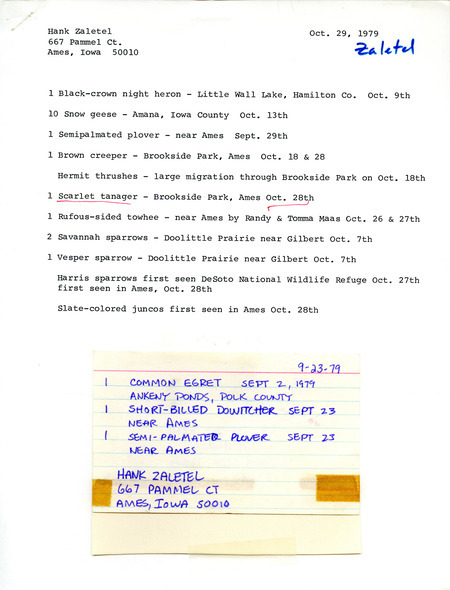 Hank Zaletel
667 Pammel Ct.
Ames, Iowa 50010
Oct. 29, 1979
Zaletel
1 Black-crown night heron - Little Wall Lake, Hamilton Co. Oct. 9th
10 Snow geese - Amana, Iowa County Oct. 13th
1 Semipalmated plover - near Ames Sept. 29th
1 Brown creeper - Brookside Park, Ames Oct. 18 & 28
Hermit thrushes - large migration through Brookside Park on Oct. 18th
1 Scarlet tanager - Brookside Park, Ames Oct. 28th
1 Rufous-sided towhee - near Ames by Randy & Tomma Maas Oct. 26 & 27th
2 Savannah sparrows - Doolittle Prairie near Gilbert Oct. 7th
1 Vesper sparrow - Doolittle Prairie near Gilbert Oct. 7th
Harris sparrows first seen DeSoto National Wildlife Refuge Oct. 27th
first seen in Ames, Oct. 28th
Slate-colored juncos first seen in Ames Oct. 28th
9-23-79
1 COMMON EGRET SEPT 2, 1979
ANKENY PONDS, POLK COUNTY
1 SHORT-BILLED DOWITCHER SEPT 23
NEAR AMES
1 SEMI-PALMATED PLOVER SEPT 23
NEAR AMES
HANK ZALETEL
667 PAMMEL CT
AMES, IOWA 50010